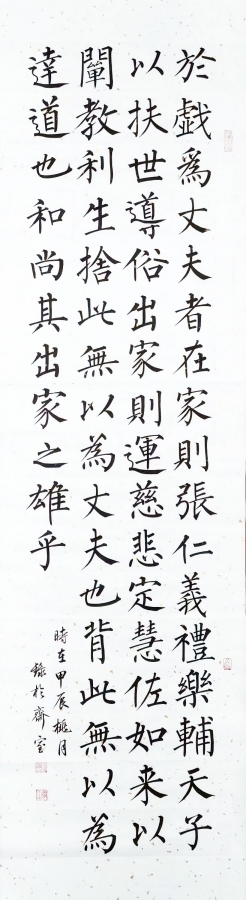 於戲爲丈夫者在家則張仁義禮樂輔天子
以扶世導俗出家則運慈悲定慧佐如来以
闡教利生捨此無以為丈夫也背此無以為
達道也和尚其出家之雄乎
時在甲辰桃月
錄於齋室